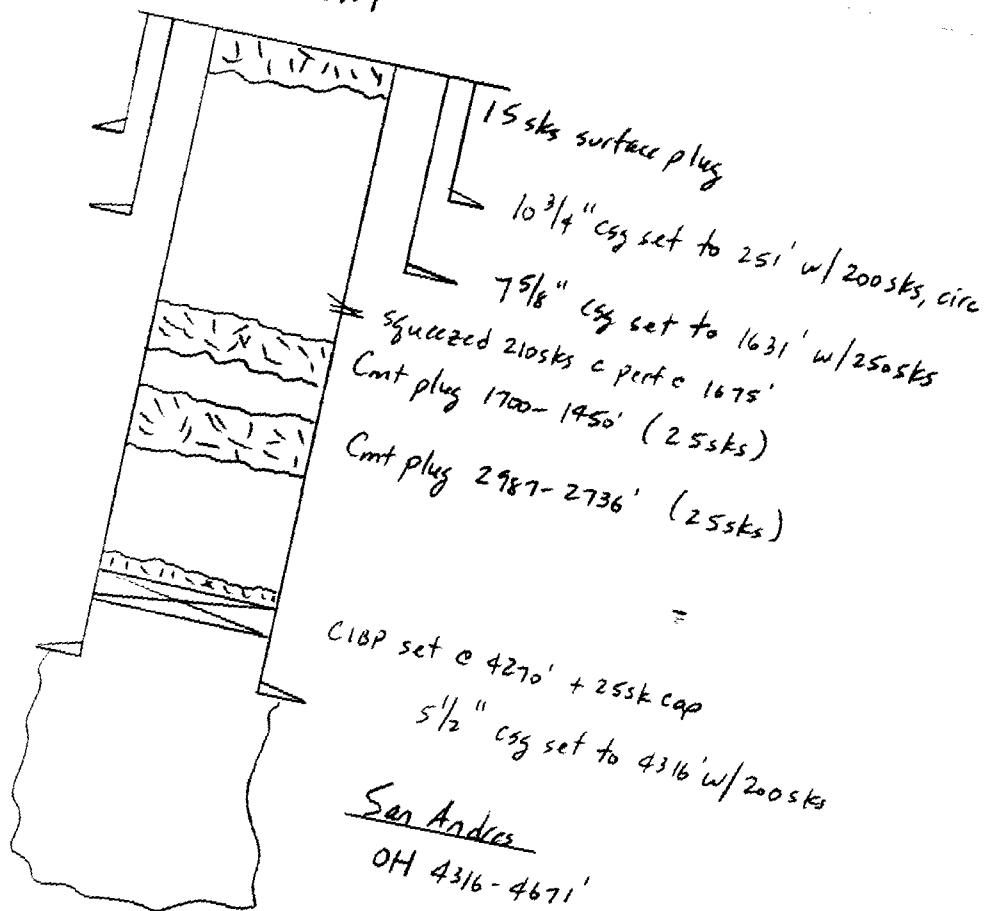 15 sks surface plug
10 3/4" csg set to 251' w/ 200sks, circ
7 5/8" csg set to 1631' w/250sks
squeezed 210sks c perf c 1675'
Cmt plug 1700-1450' (25sks)
Cmt plug 2987-2736' (25sks)
CIBP set @ 4270' + 25sk cap
5 1/2" csg set to 4316' w/200sks
San Andres
OH 4316-4671'